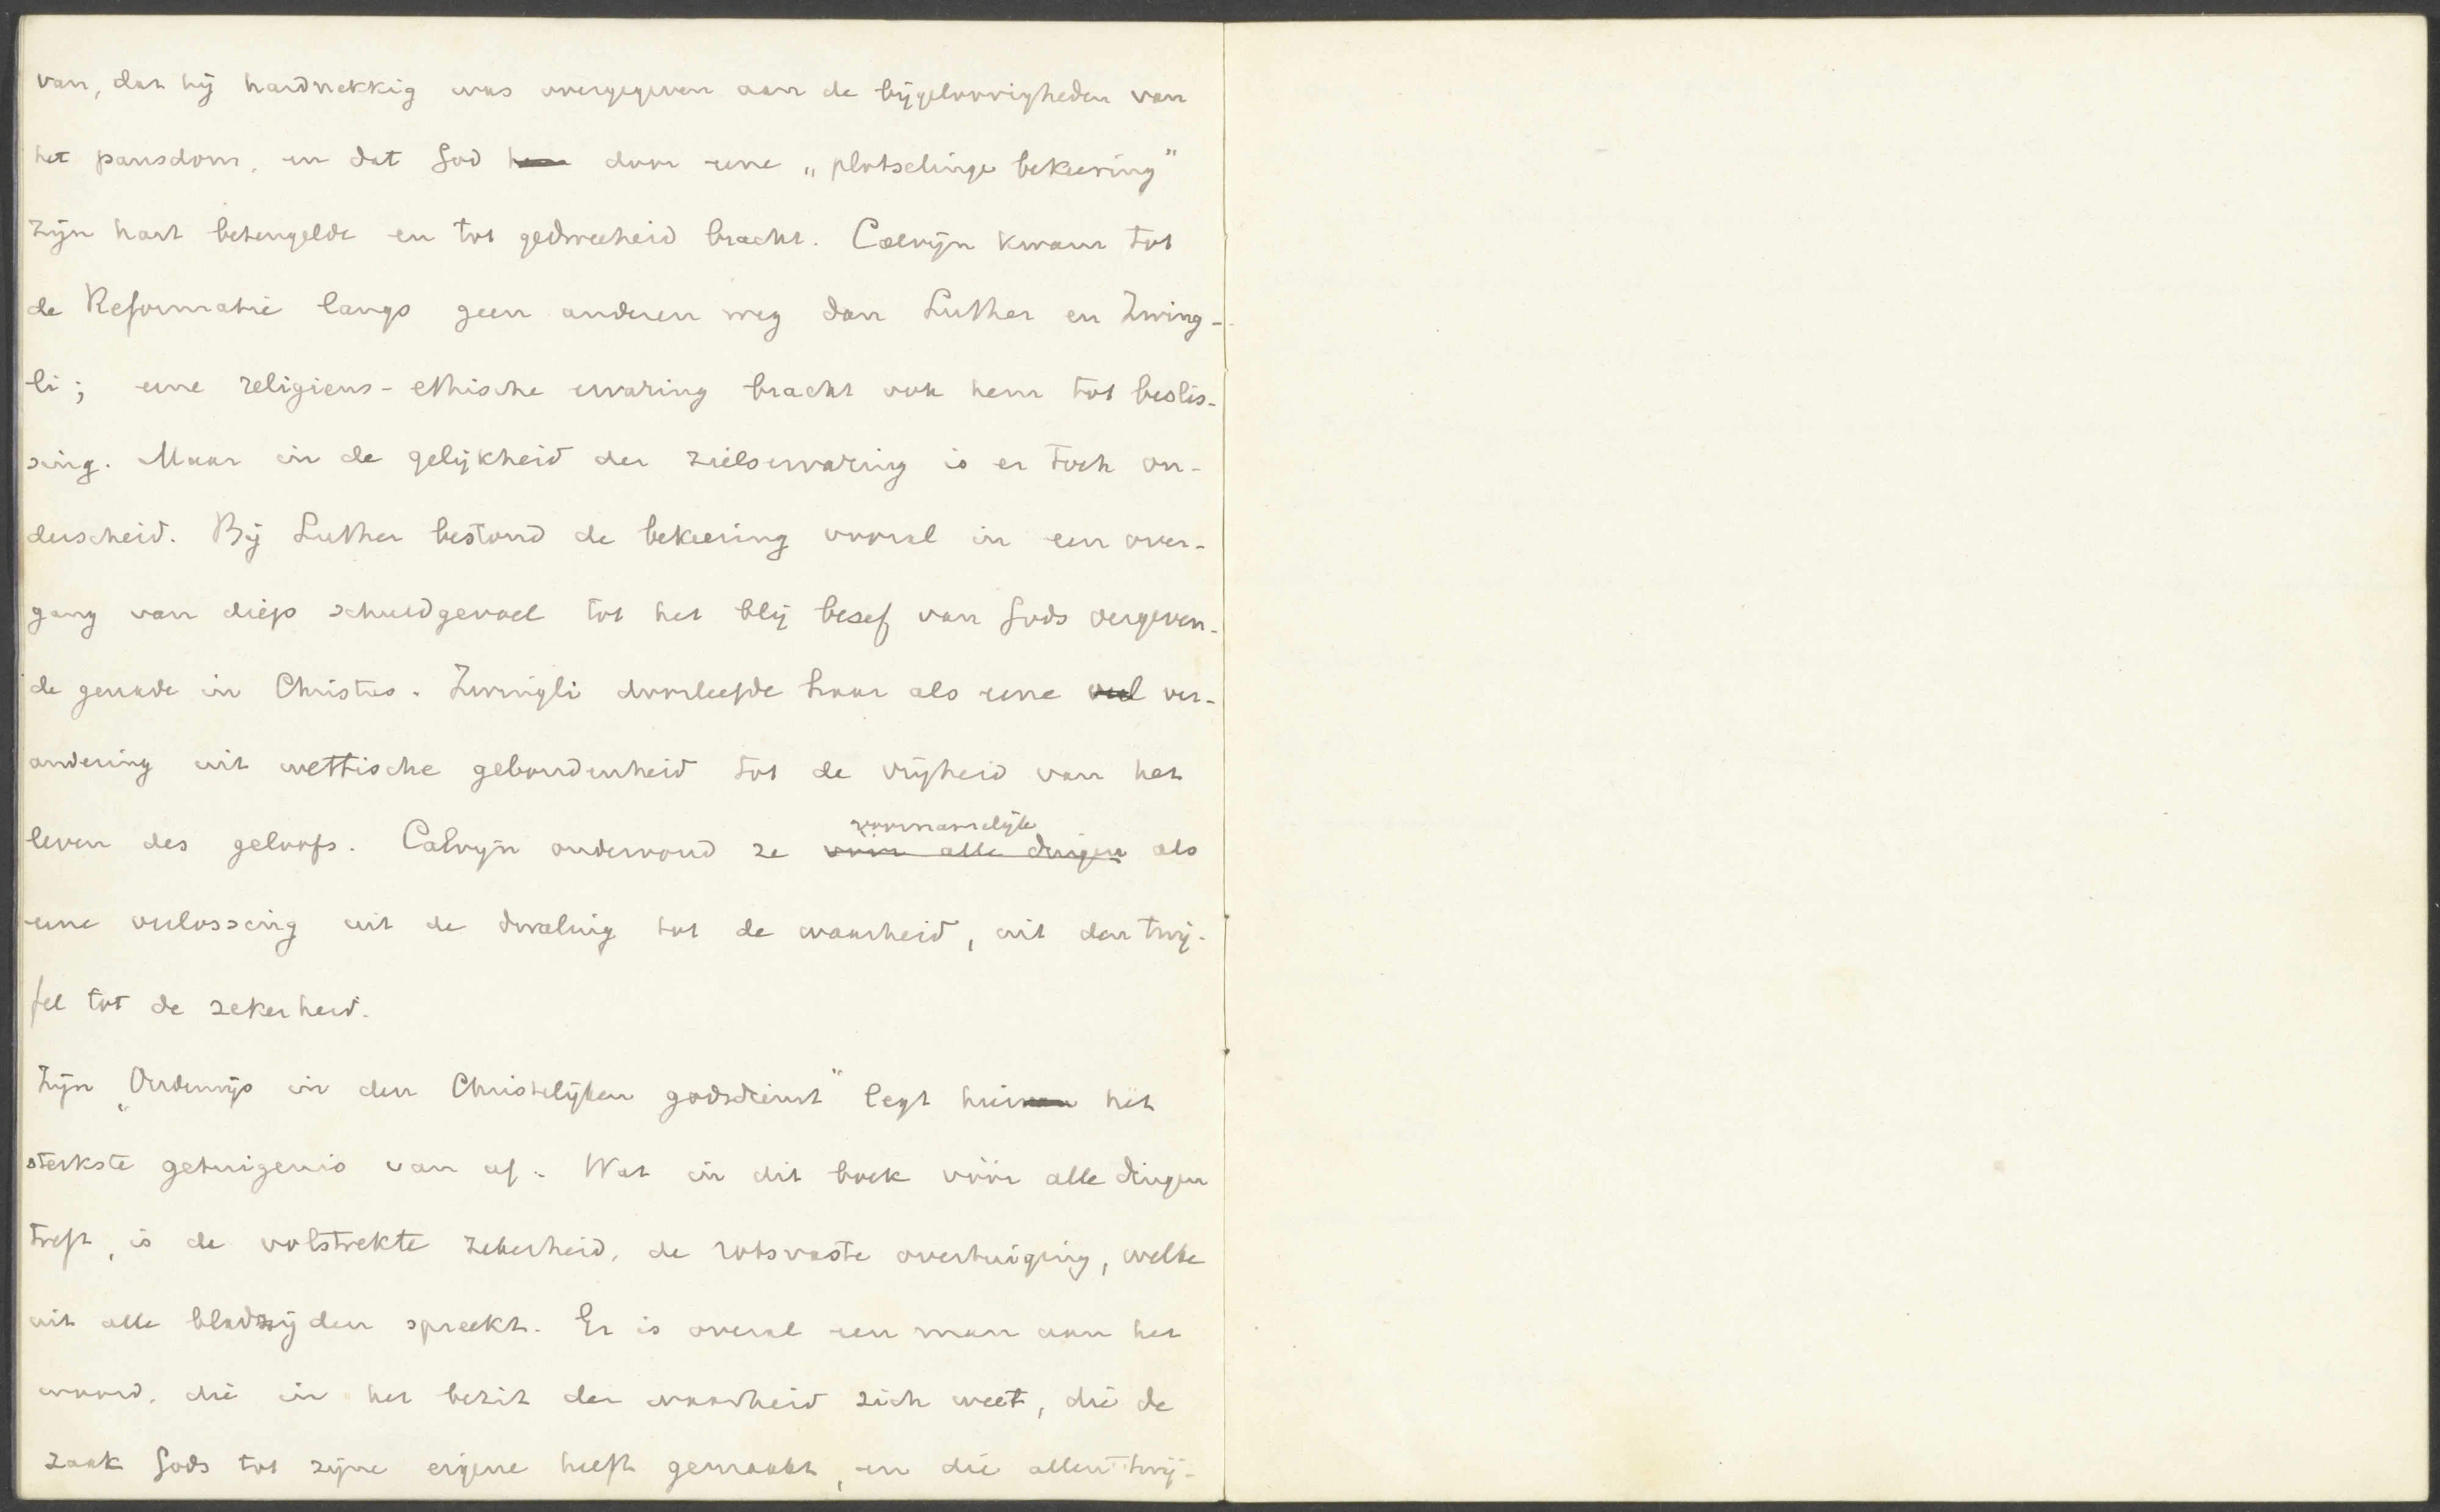 van, dat hij hardnekkig was overgegeven aan de bijgeloovigheden van
het pausdom, en dat God hem door eene „plotselinge bekeering”
zijn hart beteugelde en tot gedweeheid bracht. Calvijn kwam tot
de Reformatie langs geen anderen weg dan Luther en Zwing-
li; eene religieus-ethische ervaring bracht ook hem tot beslis-
sing. Maar in de gelijkheid der zielservaring is er toch on-
derscheid. Bij Luther bestond de bekeering vooral in een over-
gang van diep schuldgevoel tot het blij besef van Gods vergeven-
de genade in Christus. Zwingli doorleefde haar als eene veel ver-
andering uit wettische gebondenheid tot de vrijheid van het
voornamelijk
leven des geloofs. Calvijn ondervond ze vóór alle dingen als
eene verlossing uit de dwaling tot de waarheid, uit den twij-
fel tot de zekerheid.
Zijn „Onderwijs in den Christelijken godsdienst” legt hiervan het
sterkste getuigenis van af. Wat in dit boek vóór alle dingen
treft, is de volstrekte zekerheid, de rotsvaste overtuiging, welke
uit alle bladzijden spreekt. Er is overal een man aan het
woord, die in het bezit der waarheid zich weet, die de
zaak Gods tot zijne eigene heeft gemaakt, en die allen twij-